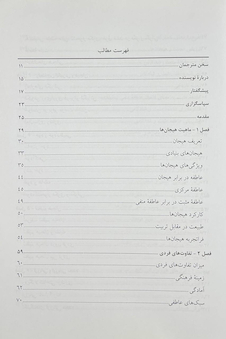 فهرست مطالب
سخن مترجمان ۱۱
دربارهٔ نویسنده ۱۵
پیشگفتار ۱۷
سپاسگزاری ۲۳
مقدمه ۲۵
فصل ۱ - ماهیت هیجان‌ها ۲۹
تعریف هیجان ۳۰
هیجان‌های بنیادی ۳۳
ویژگی‌های هیجان‌ها ۳۷
عاطفه در برابر هیجان ۴۴
عاطفهٔ مرکزی ۴۶
عاطفهٔ مثبت در برابر عاطفهٔ منفی
کارکرد هیجان‌ها ۵۰
طبیعت در مقابل تربیت ۵۳
فراتجربه هیجان‌ها
فصل ۲ - تفاوت‌های فردی ۵۹
میزان تفاوت‌های فردی ۶۰
زمینهٔ فرهنگی
آمادگی
سبک‌های عاطفی ۷۰